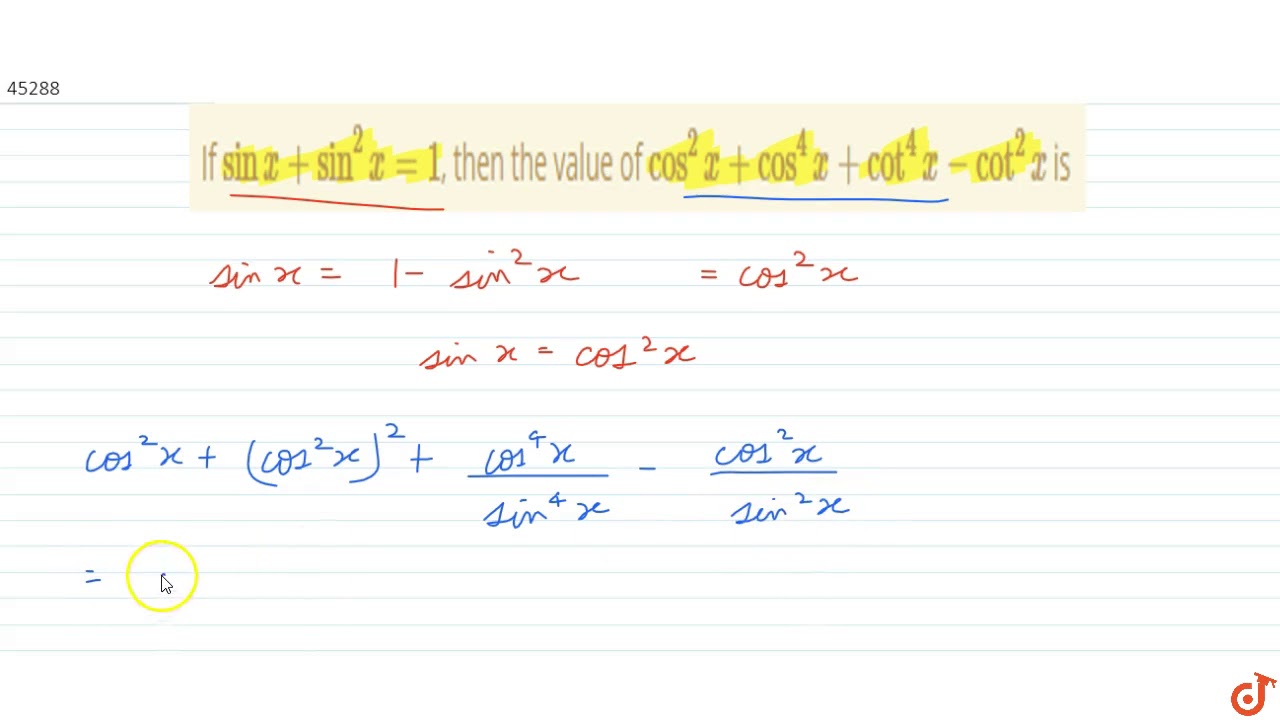 45288
If sin x + sin² x = 1, then the value of cos² x + cos⁴ x + cot⁴ x − cot² x is
sin x = 1 - sin² x = cos² x
sin x = cos² x
cos² x + (cos² x)² + cos⁴ x / sin⁴ x - cos² x / sin² x
=